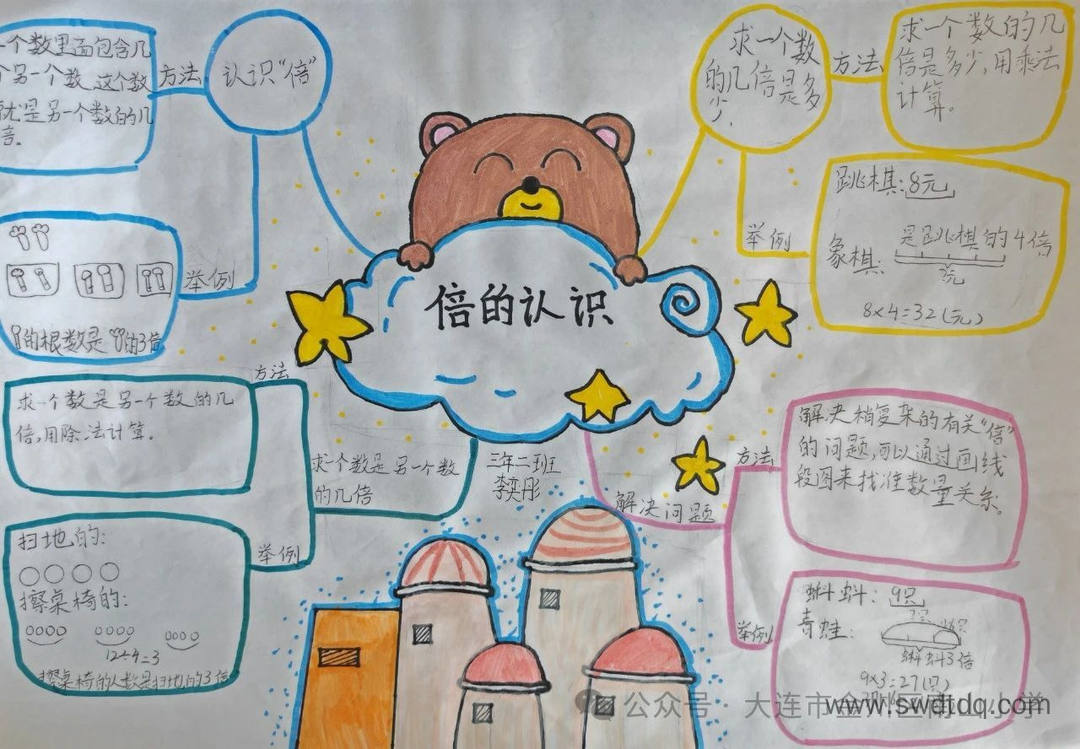 倍的认识
认识“倍”
方法
一个数里面包含几
个另一个数,这个数
就是另一个数的几
倍。
举例
的根数是
的3倍
求一个数
的几倍是多
少.
方法
求一个数的几
倍是多少,用乘法
计算。
举例
跳棋:8元
是跳棋的4倍
象棋:
?元
8×4=32(元)
求一个数是另一个数
的几倍
方法
求一个数是另一个数的几
倍,用除法计算.
举例
扫地的:
擦桌椅的:
12÷4=3
擦桌椅的人数是扫地的3倍
三年二班
李奕彤
解决问题
方法
解决稍复杂的有关“倍”
的问题,可以通过画线
段图来找准数量关系。
举例
蝌蚪:9只
青蛙:
蝌蚪3倍
9×3=27(只)
公众号 大连市金
www.swdtdq.com